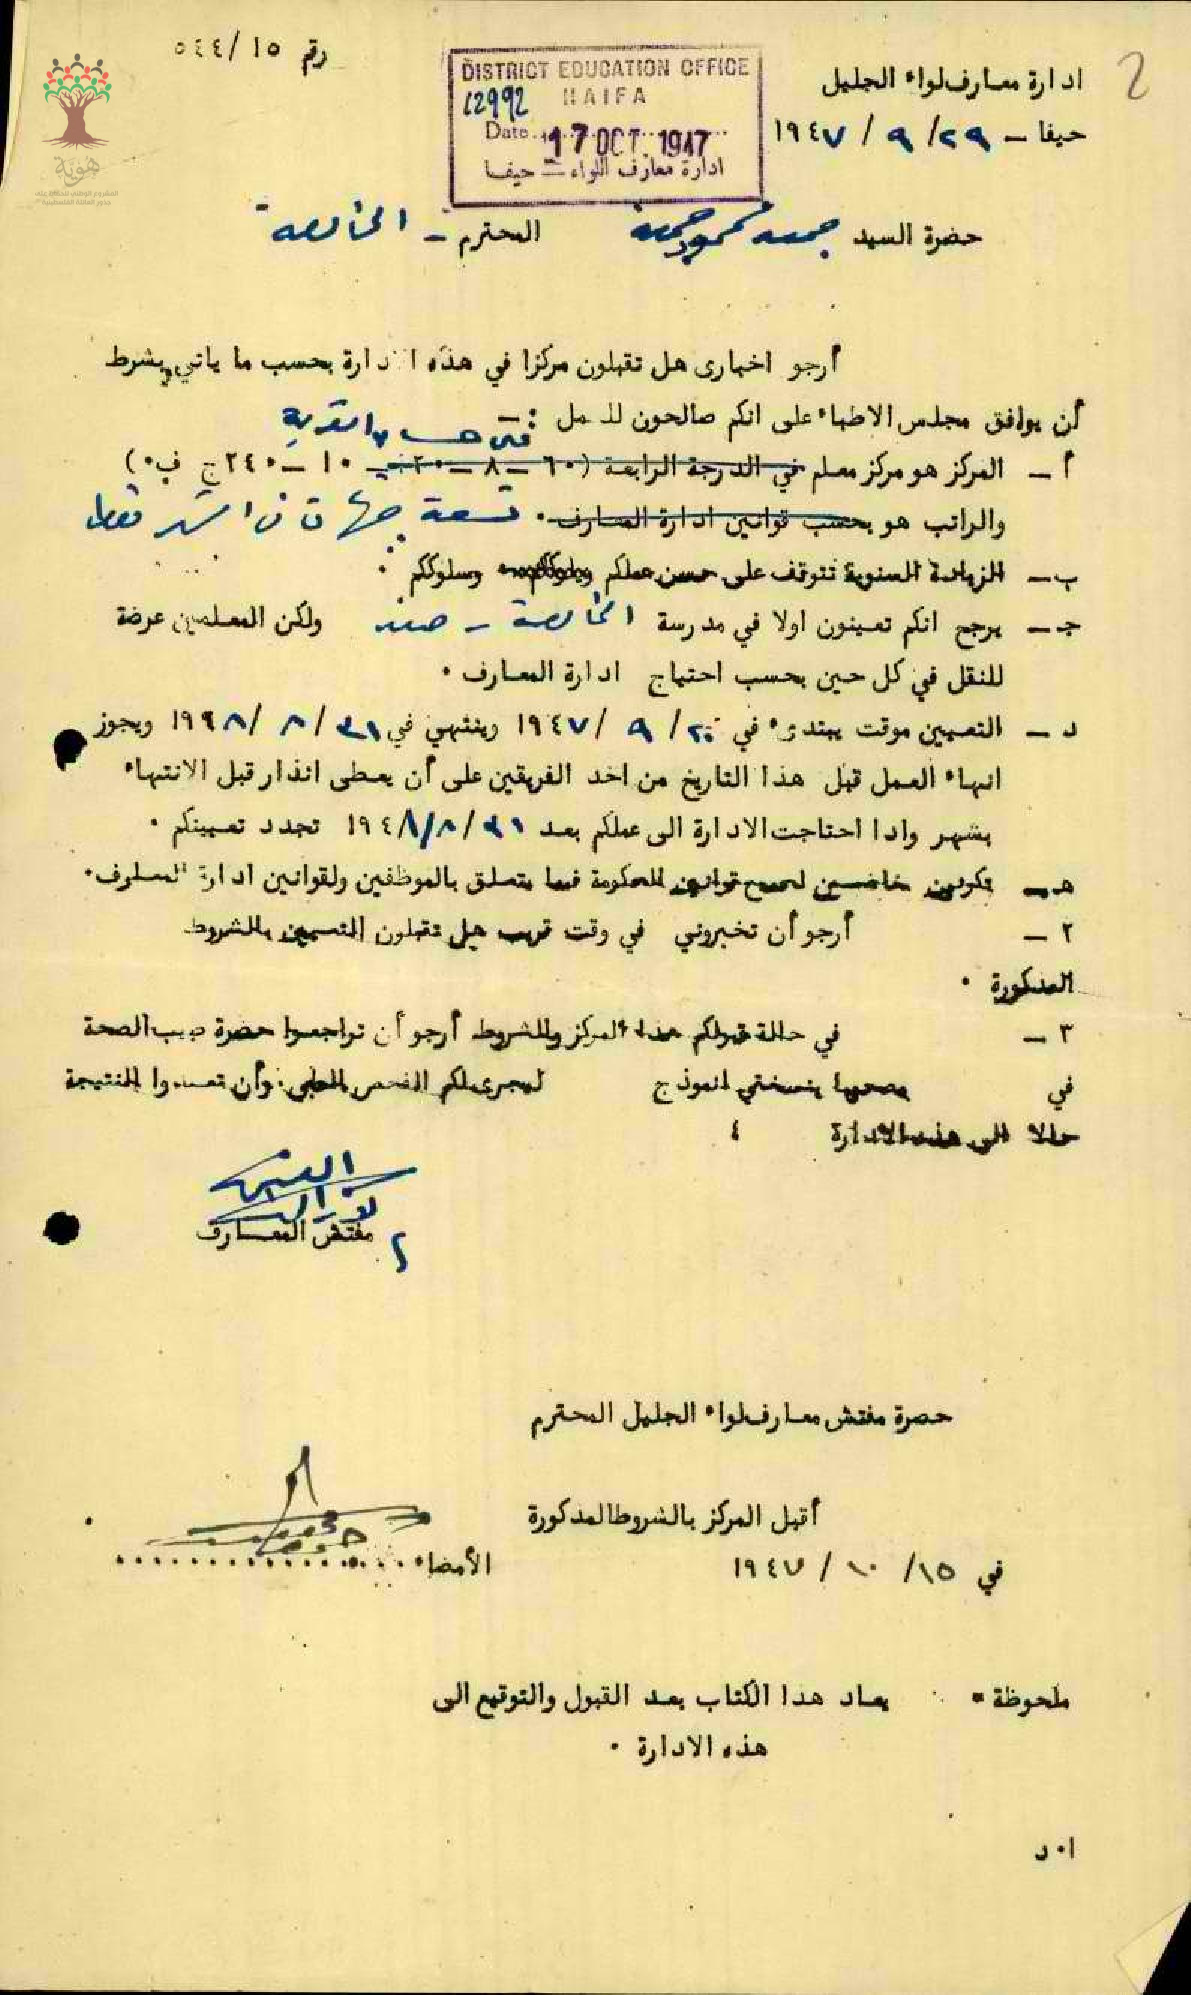 رقم ١٥/٥٤٤
2
DISTRICT EDUCATION OFFICE
12992 HAIFA
Date 17 OCT. 1947
ادارة معارف اللواء — حيفا
ادارة معارف لواء الجليل
حيفا — ٢٩/ ٩ / ١٩٤٧
هوية
حضرة السيد جمعه محمود جمعه المحترم — الخالصة
أرجو اخباري هل تقبلون مركزا في هذه الادارة بحسب ما ياتي وبشرط
أن يوافق مجلس الاطباء على انكم صالحون للعمل :—
أ — المركز هو مركز معلم في الدرجة الرابعة (٦٠ — ٨ — ١٢٠ — ١٠ — ٢٤٠ ج ف٠) على حساب القرية
والراتب هو بحسب قوانين ادارة المعارف٠ تسعة جنيهات في الشهر فقط
ب — الزيادة السنوية تتوقف على حسن عملكم وسلوككم ٠
جـ — يرجح انكم تعينون اولا في مدرسة الخالصة — صفد ولكن المعلمين عرضة
للنقل في كل حين بحسب احتياج ادارة المعارف ٠
د — التعيين موقت يبتدىء في ٢٠/ ٩ / ١٩٤٧ وينتهي في ٣١/ ٨ /١٩٤٨ ويجوز
انهاء العمل قبل هذا التاريخ من احد الفريقين على أن يعطى انذار قبل الانتهاء
بشهر واذا احتاجت الادارة الى عملكم بعد ٣١/٨/١٩٤٨ تجدد تعيينكم ٠
هـ — تكونون خاضعين لجميع قوانين الحكومة فيما يتعلق بالموظفين ولقوانين ادارة المعارف٠
٢ — أرجو أن تخبروني في وقت قريب هل تقبلون التعيين بالشروط
المذكورة ٠
٣ — في حالة قبولكم هذا المركز والشروط أرجو أن تراجعوا حضرة طبيب الصحة
في مصحوبا بنسختي انموذج ليجرى لكم الفحص الطبي وأن تعيدوا النتيجة
حالا الى هذه الادارة ٤
مفتش المعارف
حضرة مفتش معارف لواء الجليل المحترم
أقبل المركز بالشروط المذكورة
في ١٥/ ١٠ / ١٩٤٧ الأمضاء
ملحوظة • يعاد هذا الكتاب بعد القبول والتوقيع الى
هذه الادارة ٠
ا٠ د